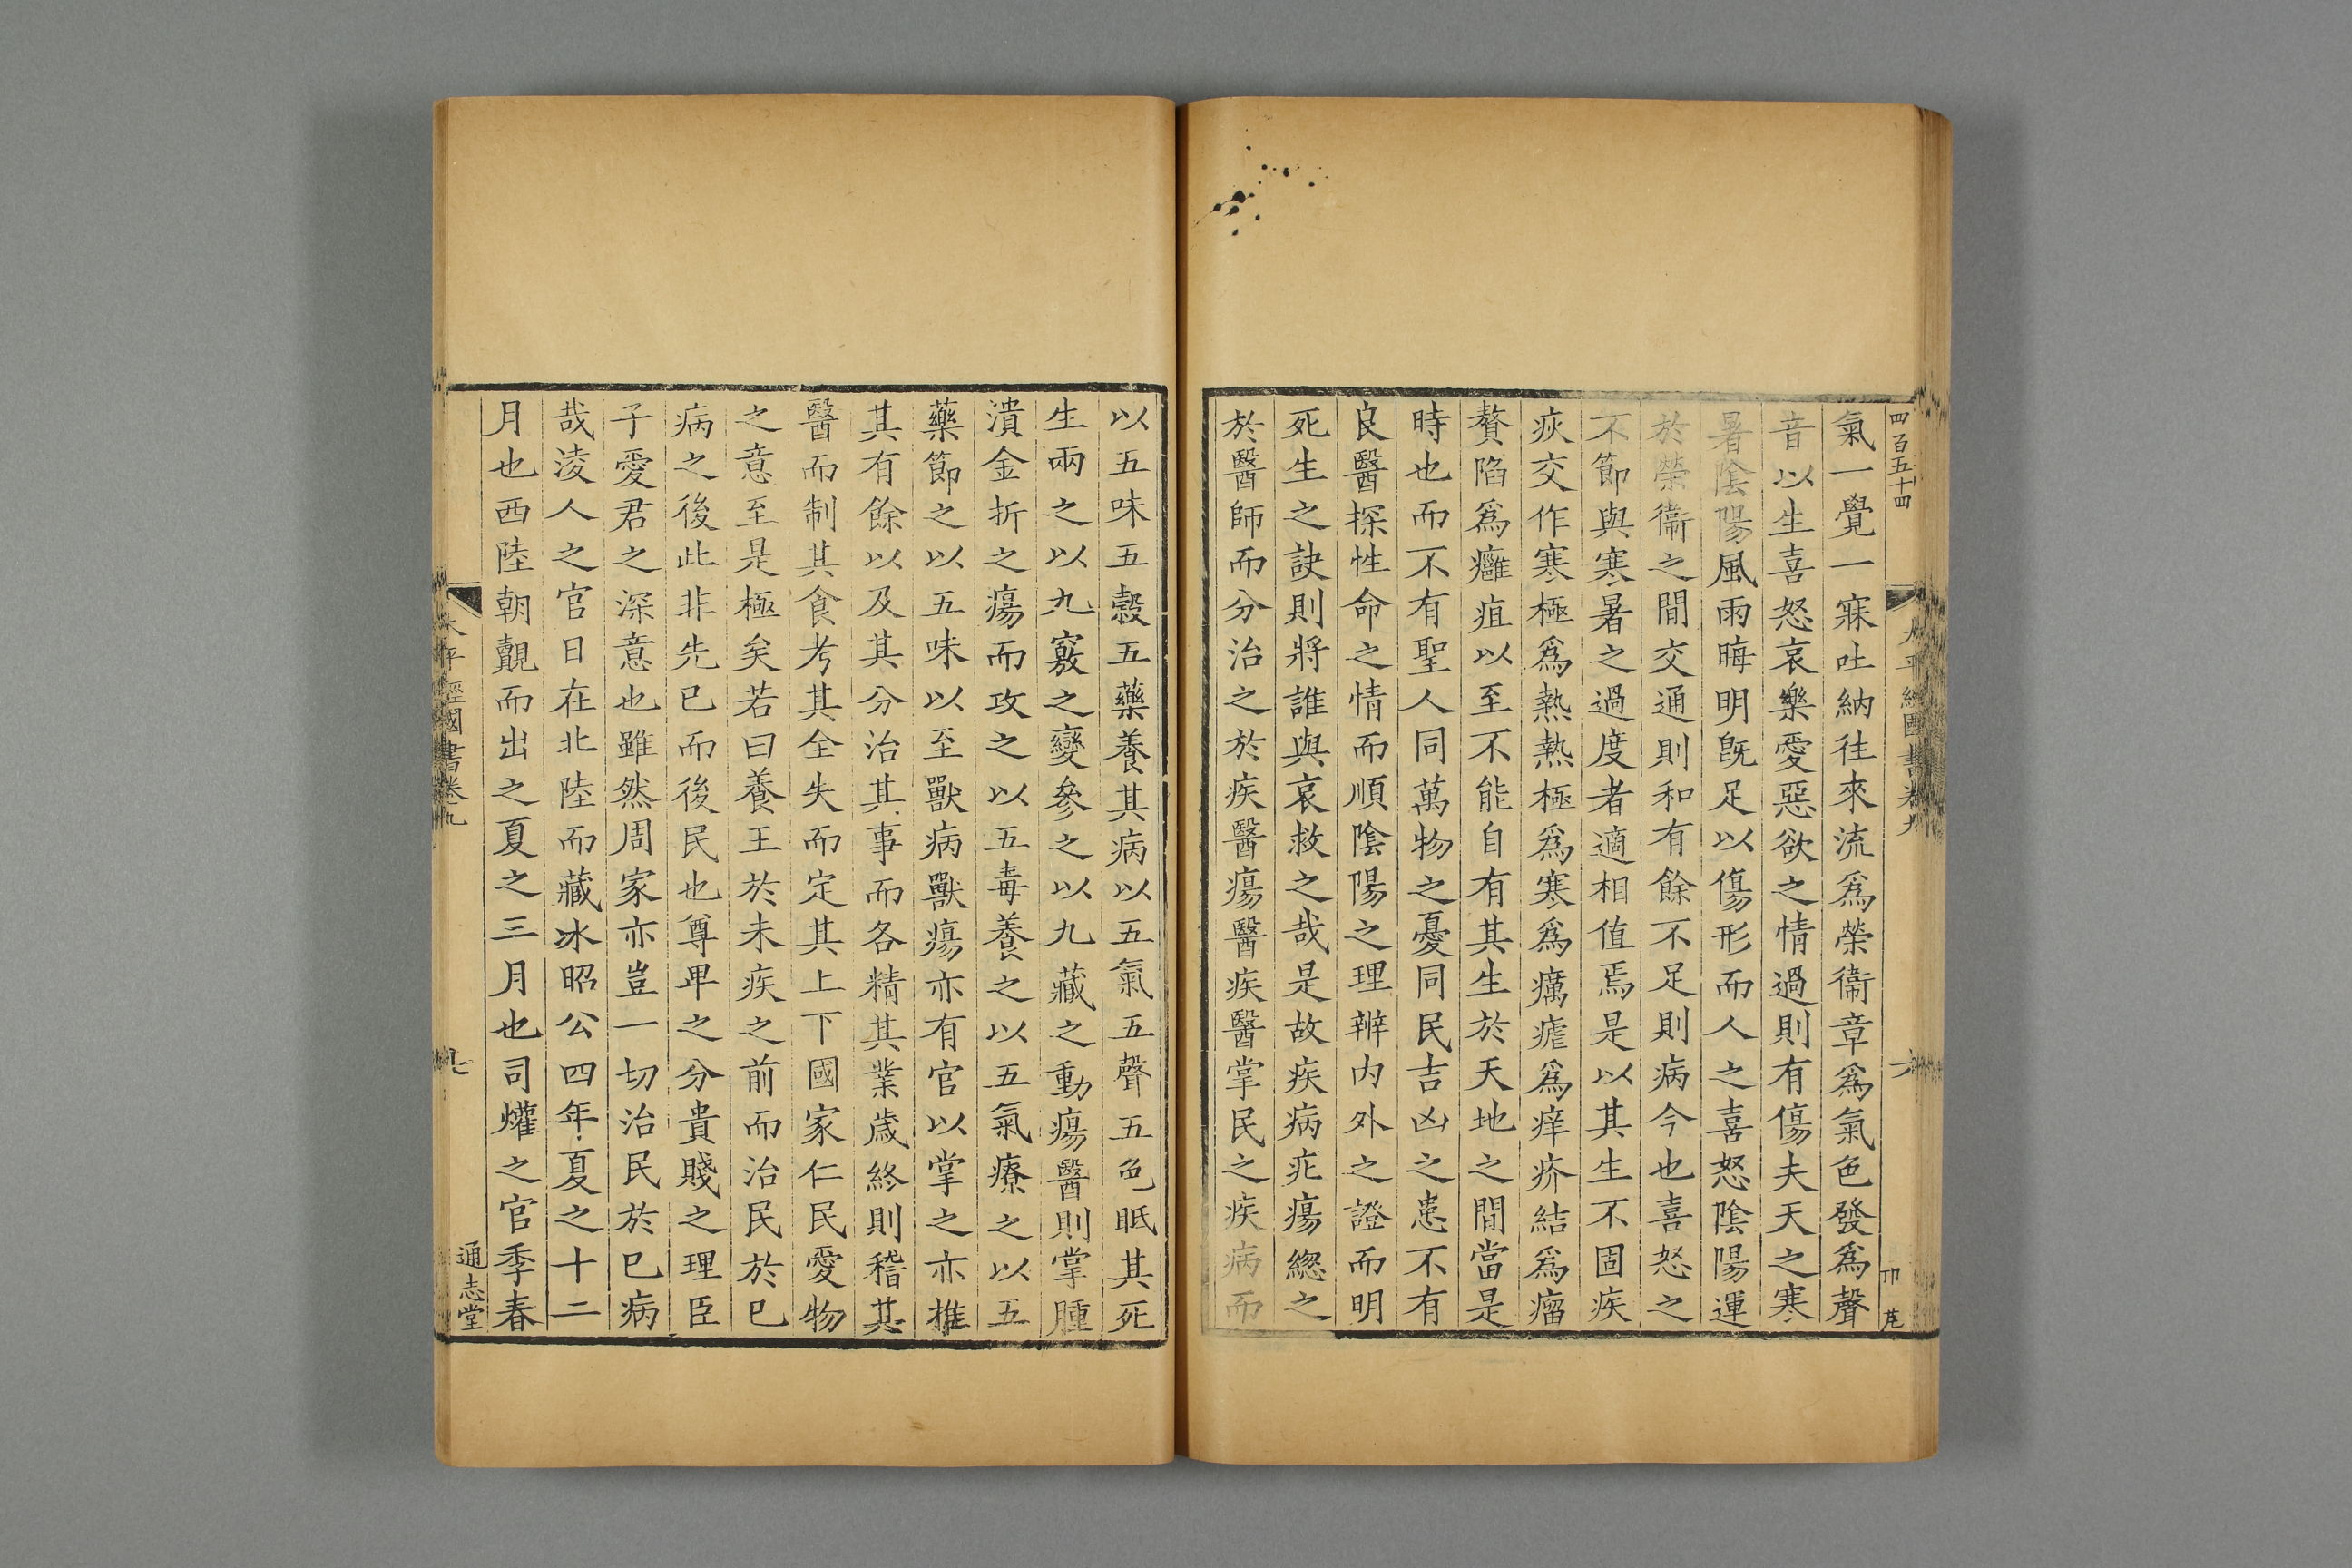 四百五十四
氣一覺一寐吐納往來流爲榮衞章爲氣色發爲聲
音以生喜怒哀樂愛惡欲之情過則有傷夫天之寒
暑陰陽風雨晦明旣足以傷形而人之喜怒陰陽運
於榮衞之間交通則和有餘不足則病今也喜怒之
不節與寒暑之過度者適相值焉是以其生不固疾
疢交作寒極爲熱熱極爲寒爲癘瘧爲痒疥結爲瘤
贅陷爲癰疽以至不能自有其生於天地之間當是
時也而不有聖人同萬物之憂同民吉凶之患不有
良醫探性命之情而順陰陽之理辨内外之證而明
死生之訣則將誰與哀救之哉是故疾病疕瘍緫之
於醫師而分治之於疾醫瘍醫疾醫掌民之疾病而
以五味五穀五藥養其病以五氣五聲五色眡其死
生兩之以九竅之變參之以九藏之動瘍醫則掌腫
潰金折之瘍而攻之以五毒養之以五氣療之以五
藥節之以五味以至獸病獸瘍亦有官以掌之亦推
其有餘以及其分治其事而各精其業歲終則稽其
醫而制其食考其全失而定其上下國家仁民愛物
之意至是極矣若曰養王於未疾之前而治民於巳
病之後此非先已而後民也尊卑之分貴賤之理臣
子愛君之深意也雖然周家亦豈一切治民於巳病
哉淩人之官日在北陸而藏冰昭公四年夏之十二
月也西陸朝覿而出之夏之三月也司爟之官季春
太平經國書卷九
七
通志堂